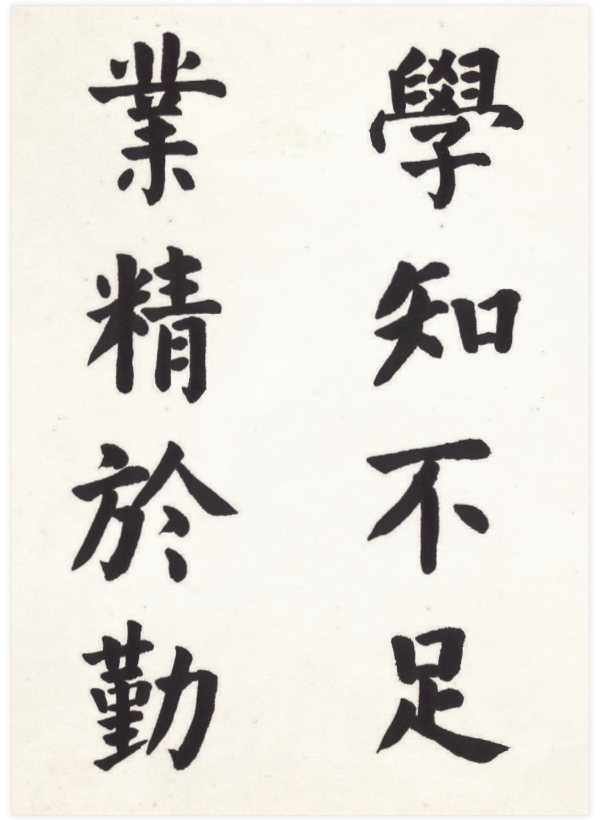 學知不足
業精於勤